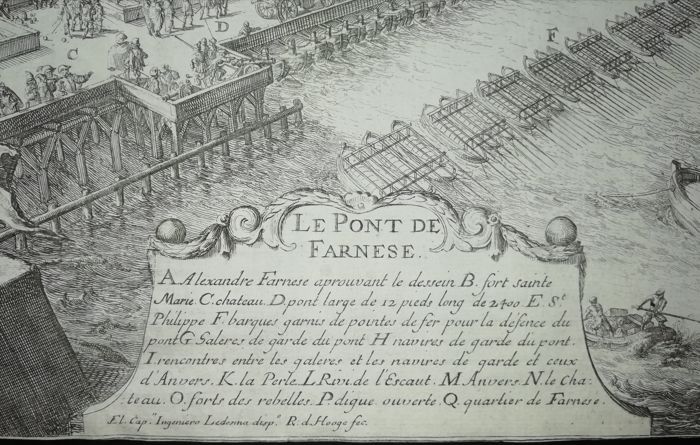 C
D
F
LE PONT DE
FARNESE.
A. Alexandre Farnese aprouvant le dessein B. fort sainte
Marie C. chateau. D. pont large de 12 pieds long de 2400 E St
Philippe F. barques garnis de pointes de fer pour la défence du
pont G. Galeres de garde du pont H navires de garde du pont.
I. rencontres entre les galeres et les navires de garde et ceux
d'Anvers. K. la Perle. L. Riv. de l'Escaut. M. Anvers. N. le cha-
teau. O. forts des rebelles. P. digue ouverte. Q. quartier de Farnese.
El. Cap.n Ingeniero Ledesma disp.o R. d. Hooge fec.